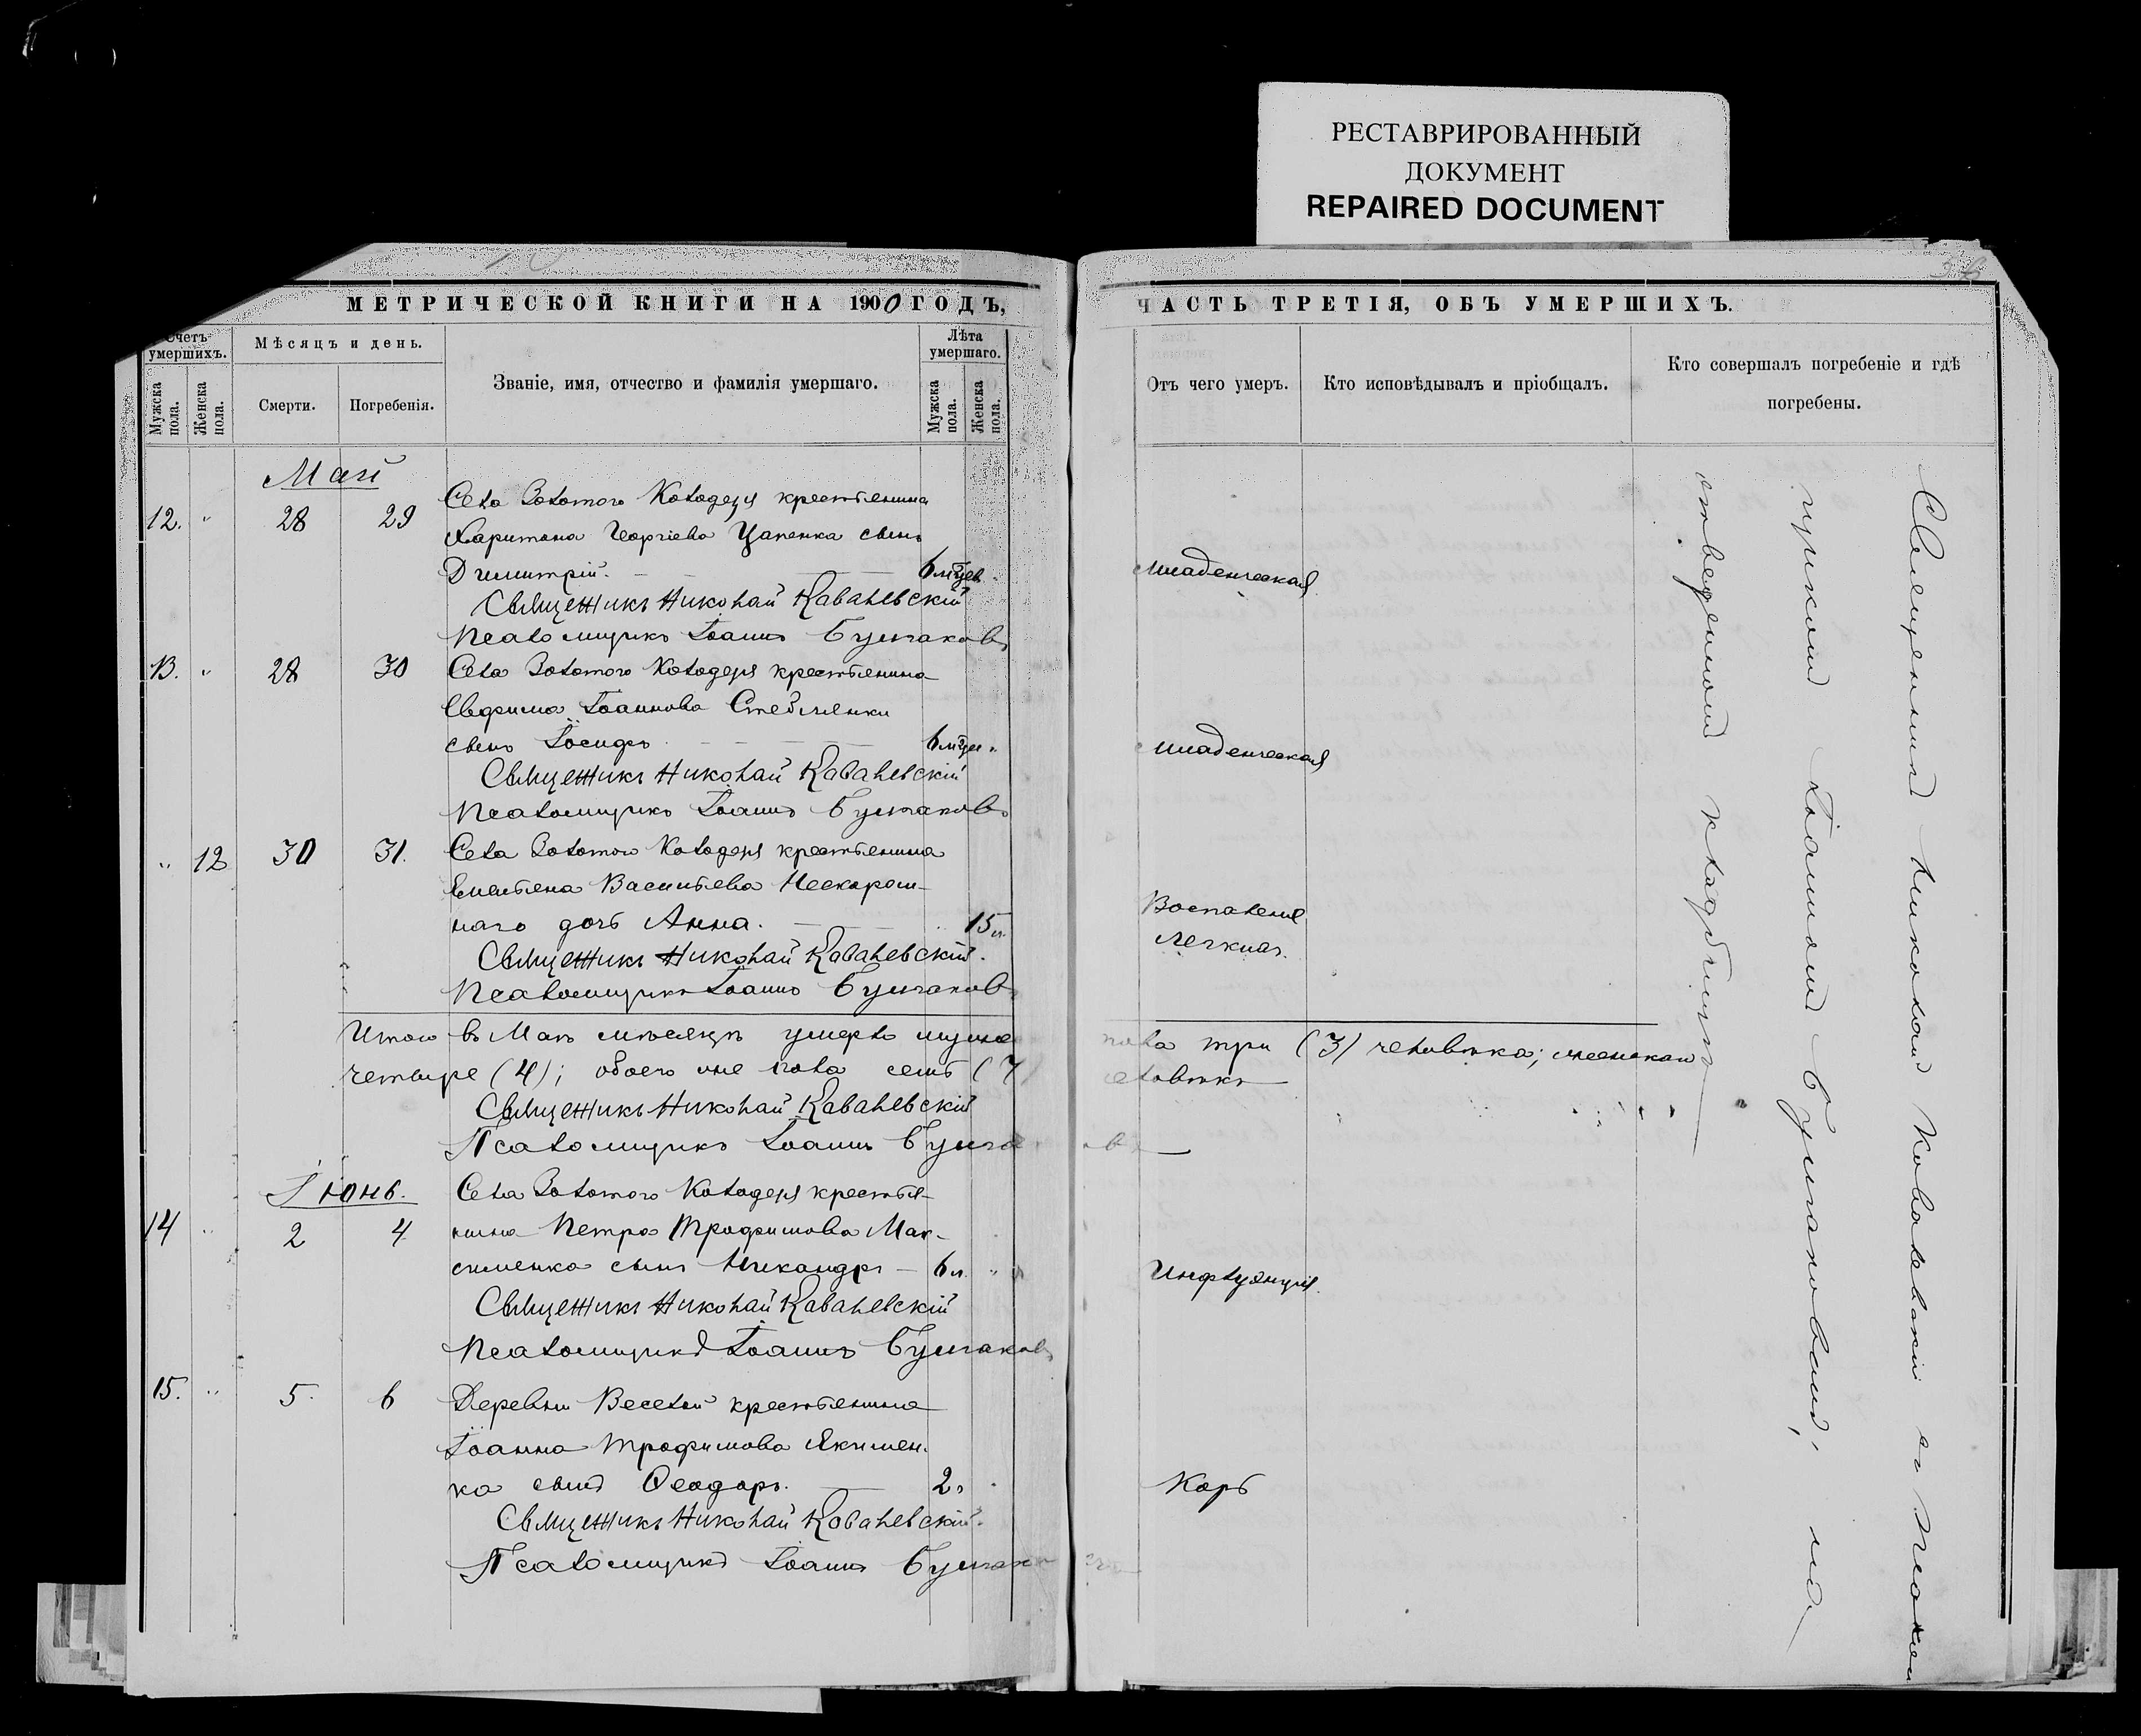 РЕСТАВРИРОВАННЫЙ
ДОКУМЕНТ
REPAIRED DOCUMENT
МЕТРИЧЕСКОЙ КНИГИ НА 1900 ГОДЪ,
ЧАСТЬ ТРЕТІЯ, ОБЪ УМЕРШИХЪ.
Счетъ умершихъ.
Мужска пола.
Женска пола.
Мѣсяцъ и день.
Смерти.
Погребенія.
Званіе, имя, отчество и фамилія умершаго.
Лѣта умершаго.
Мужска пола.
Женска пола.
Отъ чего умеръ.
Кто исповѣдывалъ и пріобщалъ.
Кто совершалъ погребеніе и гдѣ
погребены.
Май
12. " 28 29 Села Золотого Колодезя крестьянина
Харитона Георгіева Цапенка сынъ
Димитрій. 6 мѣцев Младенческая
Священникъ Николай Ковалевскій
Псаломщикъ Іоаннъ Булгаковъ
13. " 28 30 Села Золотого Колодезя крестьянина
Евфима Іоаннова
сынъ Іосифъ 6 мѣцев Младенческая
Священникъ Николай Ковалевскій
Псаломщикъ Іоаннъ Булгаковъ
" 12 30 31. Села Золотого Колодезя крестьянина
Емельяна Васильева Нескором-
наго дочь Анна. 15 л. Воспаленія
легкихъ.
Священникъ Николай Ковалевскій.
Псаломщикъ Іоаннъ Булгаковъ
Итого въ Маѣ мѣсяцѣ умерло мужска пола три (3) человѣка; женскаго
четыре (4); обоего же пола семь (7) человѣкъ
Священникъ Николай Ковалевскій
Псаломщикъ Іоаннъ Булгаковъ
Іюнь.
14 " 2 4 Села Золотого Колодезя крестья-
нина Петра Трофимова Мак-
сименка сынъ Никандръ 6 л. " Инфлуэнція.
Священникъ Николай Ковалевскій
Псаломщикъ Іоаннъ Булгаковъ
15. " 5. 6 Деревни Веселой крестьянина
Іоанна Трофимова Якимен-
ка сынъ Ѳеодоръ. 2 Корь
Священникъ Николай Ковалевскій.
Псаломщикъ Іоаннъ
Священникъ Николай Ковалевскій съ
Іоанномъ Булгаковымъ, на
отведенномъ кладбищѣ